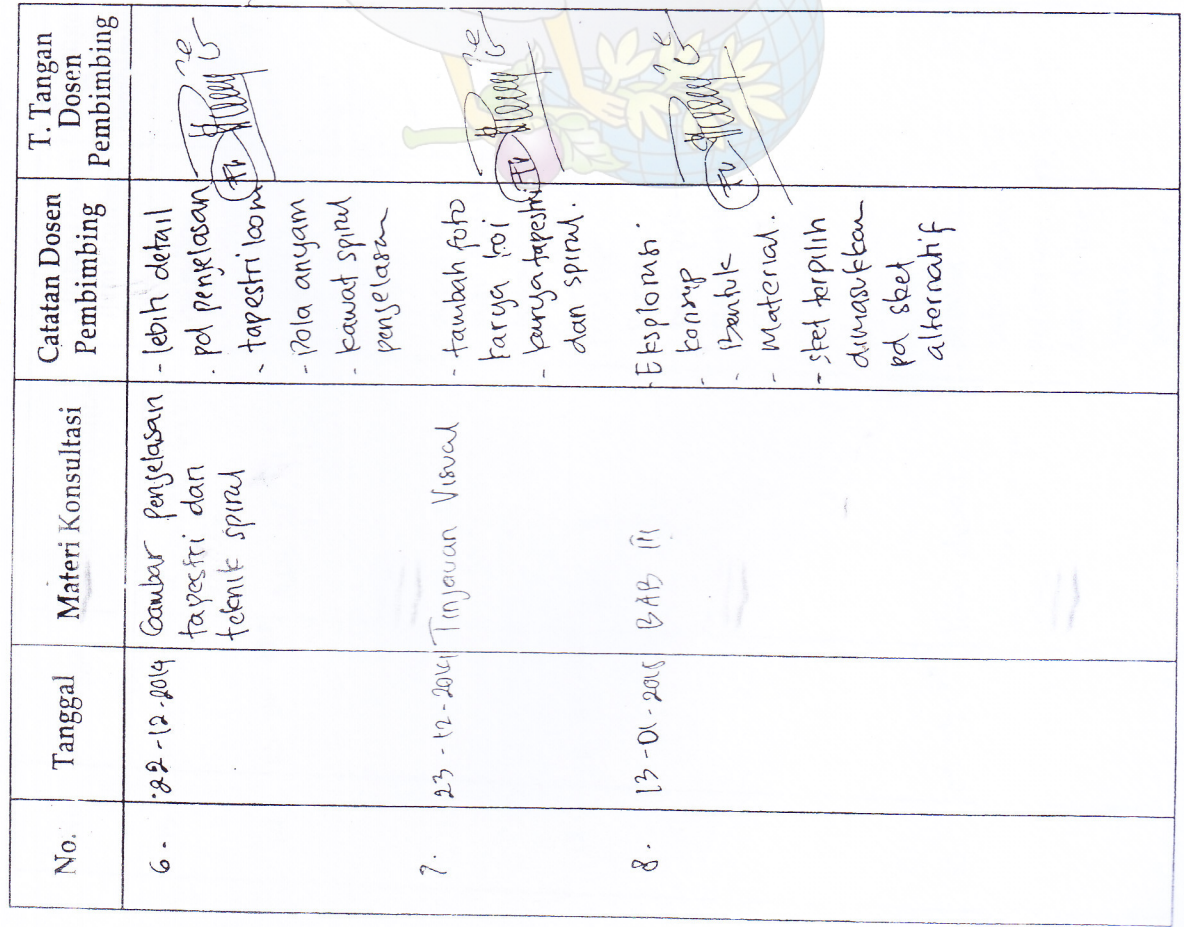 No.
Tanggal
Materi Konsultasi
Catatan Dosen
Pembimbing
T. Tangan
Dosen
Pembimbing
6.
22-12-2014
Gambar penjelasan
tapestri dan
teknik spiral
- lebih detail
- pd penjelasan
- tapestri loom
- Pola anyam
- kawat spiral
penjelasan
7.
23-12-2014
Tinjauan Visual
- tambah foto
karya koi
- karya tapestri
dan spiral.
8.
13-01-2015
BAB III
- Eksplorasi
- konsep
- Bentuk
- Material.
- sket terpilih
dimasukkan
pd sket
alternatif